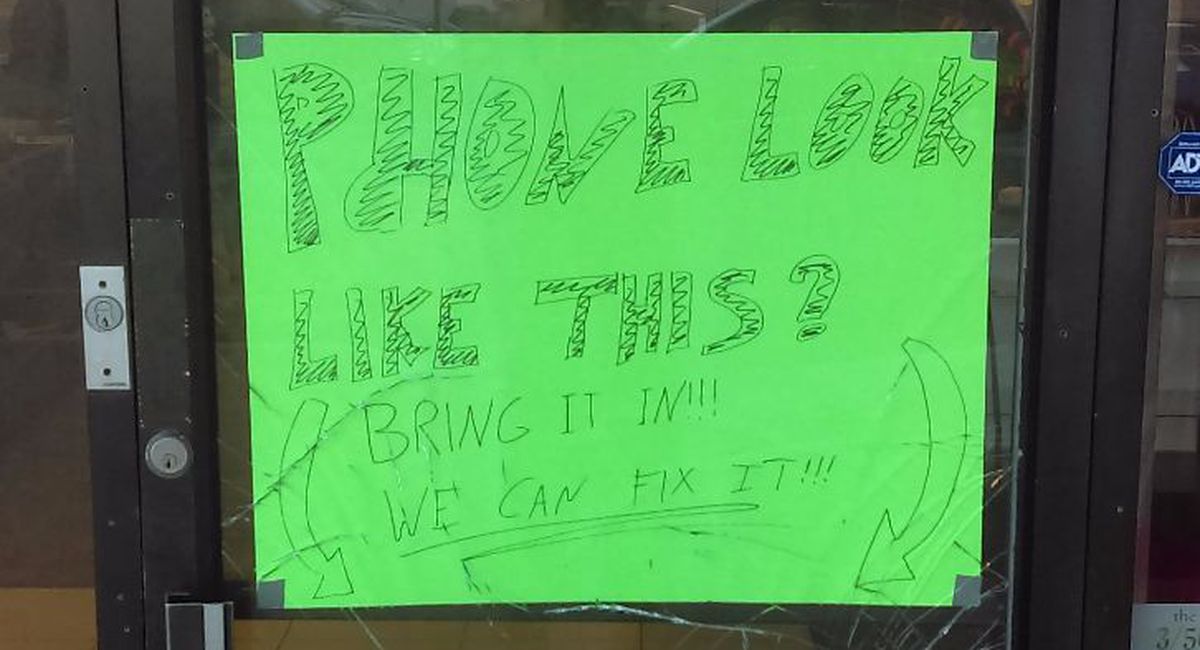 PHONE LOOK
LIKE THIS?
BRING IT IN!!!
WE CAN FIX IT!!!
AD
the
3/5